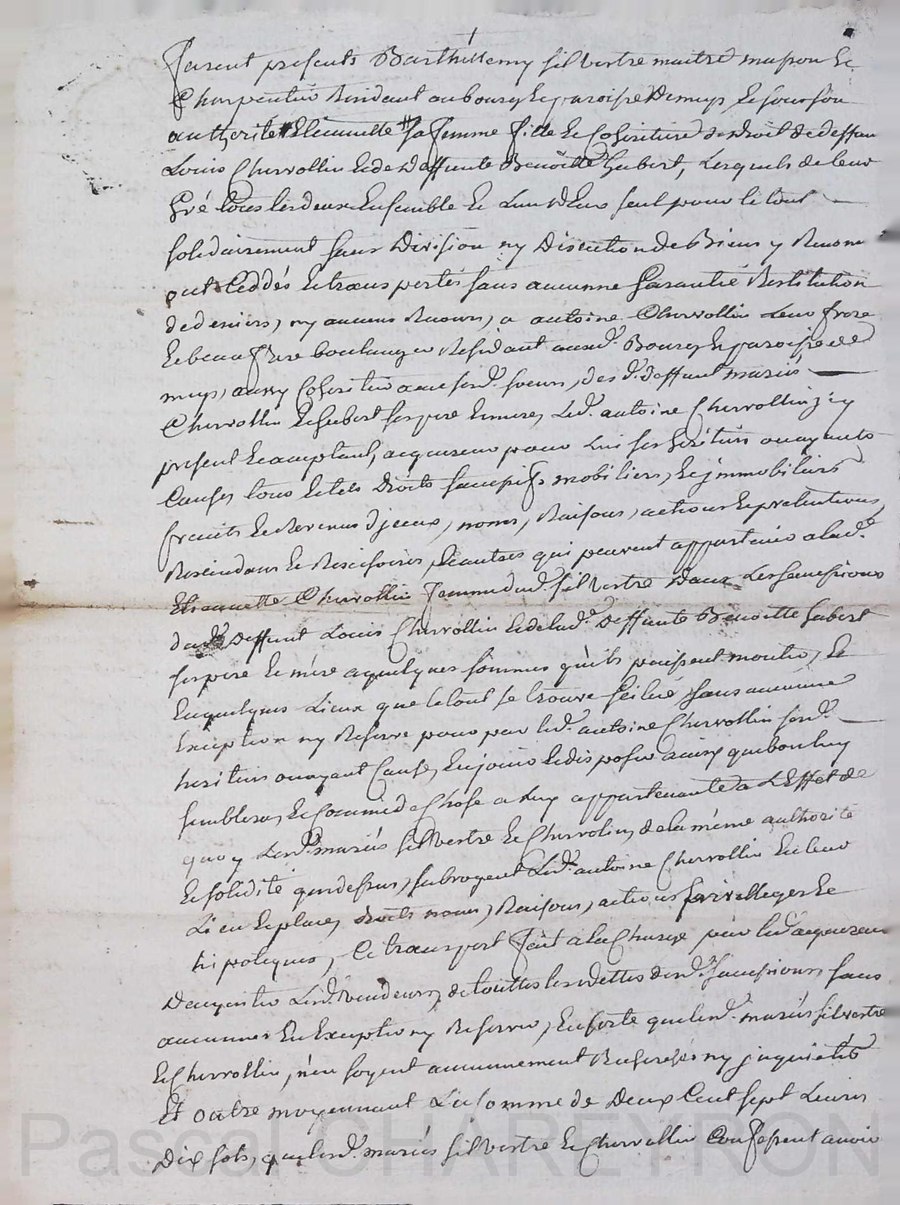 Furent presents Barthellemy silvestre maitre masson Et
Charpentier Residant au bourg Et paroisse De mups, Et sous son
authorité Elisonnette sa femme fille Et Coheritiere de Droit de deffun
Louis Chervollin Et de Deffunte Benoitte Gubert, Lesquels de leur
Gré tous les deux Ensemble Et L'un d'Eux seul pour le tout
solidairement sans Division ny Discution de Biens y Renon
ont Ceddés Et transportés sans aucunne Garantie Restitution
de deniers, ny aucuns Recours, a antoine Chervollin Leur frere
Et beau frere boulanger Résidant aud. Bourg Et paroisse de
mups, aussy Coheritier avec sad. soeur, desd. deffunt mariés
Chervollin Et Gubert ses pere Et mere, Led. antoine Chervollin jcy
present Et acceptant, acquereur pour Lui ses heritiers ou ayants
Causes, tous Et tels Droits successifs mobiliers, Et jmmobiliers
fruits Et Revenus d'jceux, noms, Raisons, actions Et pretentions,
Rescindans Et Rescisoires, Et autres qui peuvent appartenir a lad.
Elisonnette Chervollin femme dud. silvestre Dans Les successions
dud. Deffunt Louis Chervollin Et de lad. Deffunte Benoitte Gubert
ses pere Et mere a quelques sommes qu'ils puissent monter, Et
En quelques Lieux que le tout se trouve scitué, sans aucunne
Exception ny Reserve pour par led. antoine Chervollin sesd.
heritiers ou ayant Cause, En jouir Et disposer ainsy que bon luy
semblera, Et Comme de Chose a luy appartenante a L'Effet de
quoy Lesd. mariés silvestre Et Chervollin, de la même authorité
Et solidité que dessus, subrogent Led. antoine Chervollin En leur
Lieu Et place, droits noms, Raisons, actions privilleges Et
hipoteques, Ce transport fait a la Charge par led. acquereur
D'acquitter Lesd. Vendeurs, de touttes les dettes desd. successions sans
aucunnes En Excepter ny Reserver, En sorte que lesd. mariés silvestre
Et Chervollin, n'en soyent aucunnement Recherchés ny jnquietés
Et outre moyennant La somme de Deux Cent sept Livres
Dix sols, que lesd. mariés silvestre Et Chervollin Confessent avoir
Pascal CHAREYRON